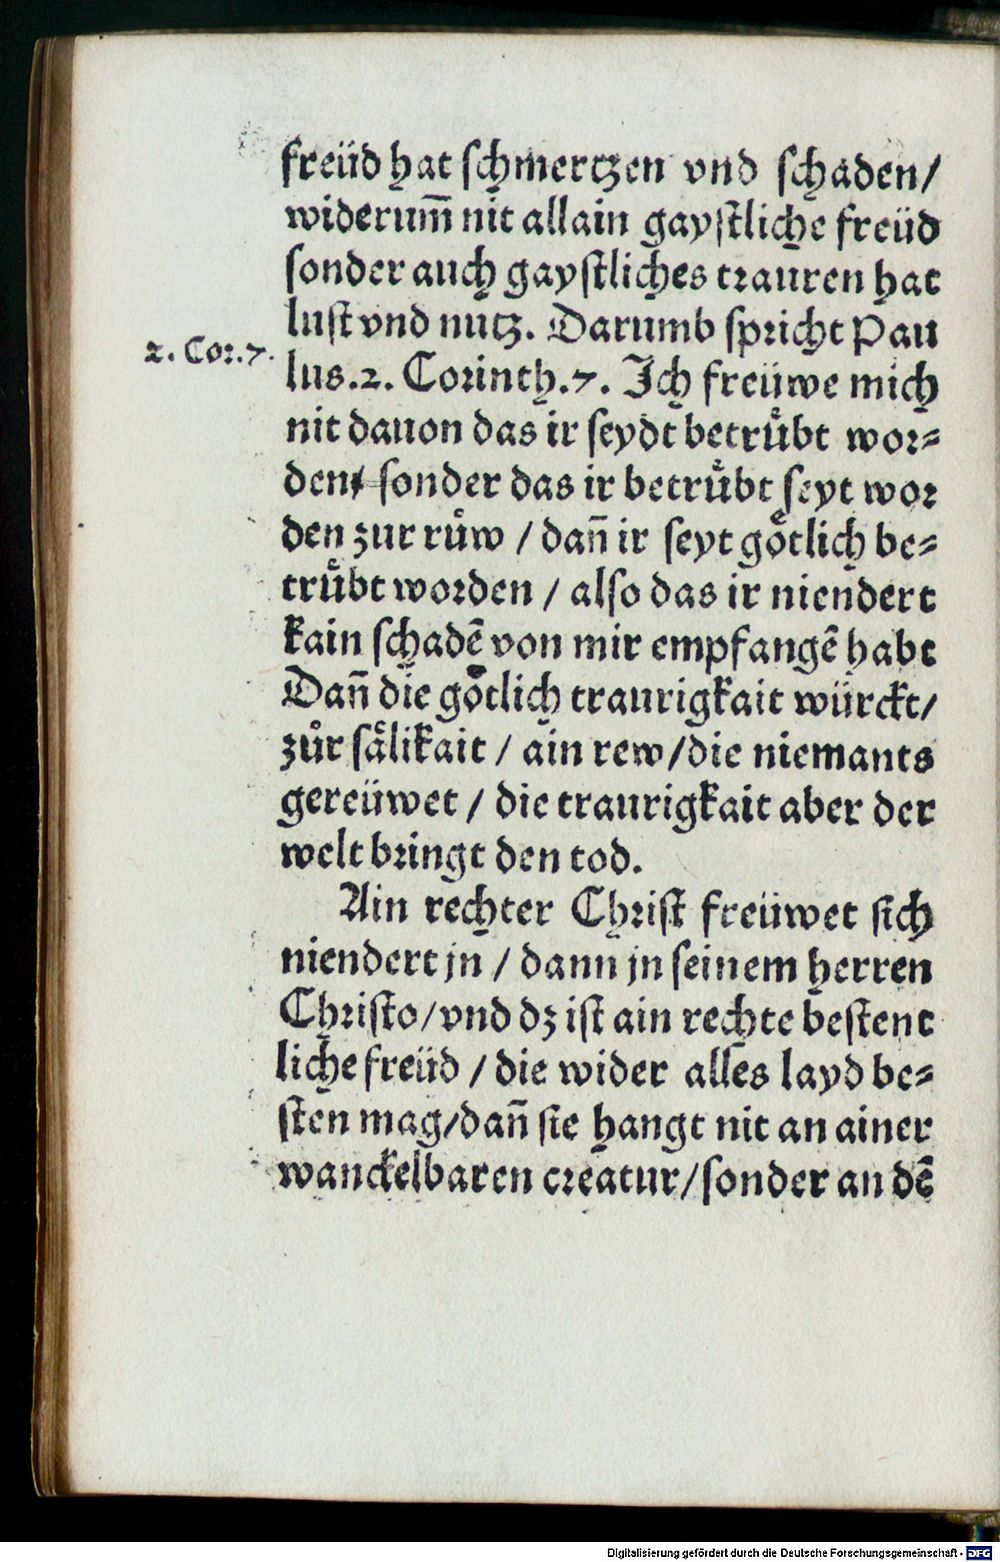 freüd hat ſchmertzen vnd ſchaden/
widerum̃ nit allain gayſtliche freüd
ſonder auch gayſtliches trauren hat
luſt vnd nutz. Darumb ſpricht Pau
2. Cor.7.
lus.2. Corinth.7. Ich freüwe mich
nit dauon das ir ſeydt betruͤbt wor⸗
den/ ſonder das ir betruͤbt ſeyt wor
den zur ruͤw / dañ ir ſeyt goͤtlich be⸗
truͤbt worden / alſo das ir niendert
kain ſchadẽ von mir empfangẽ habt
Dañ die goͤtlich traurigkait würckt/
zuͦr ſaͤlikait / ain rew/die niemants
gereüwet / die traurigkait aber der
welt bringt den tod.
Ain rechter Chriſt freüwet ſich
niendert jn / dann jn ſeinem herren
Chriſto/vnd dz iſt ain rechte beſtent
liche freüd / die wider alles layd be⸗
ſten mag/dañ ſie hangt nit an ainer
wanckelbaren creatur/ſonder an dẽ
Digitalisierung gefördert durch die Deutsche Forschungsgemeinschaft - DFG